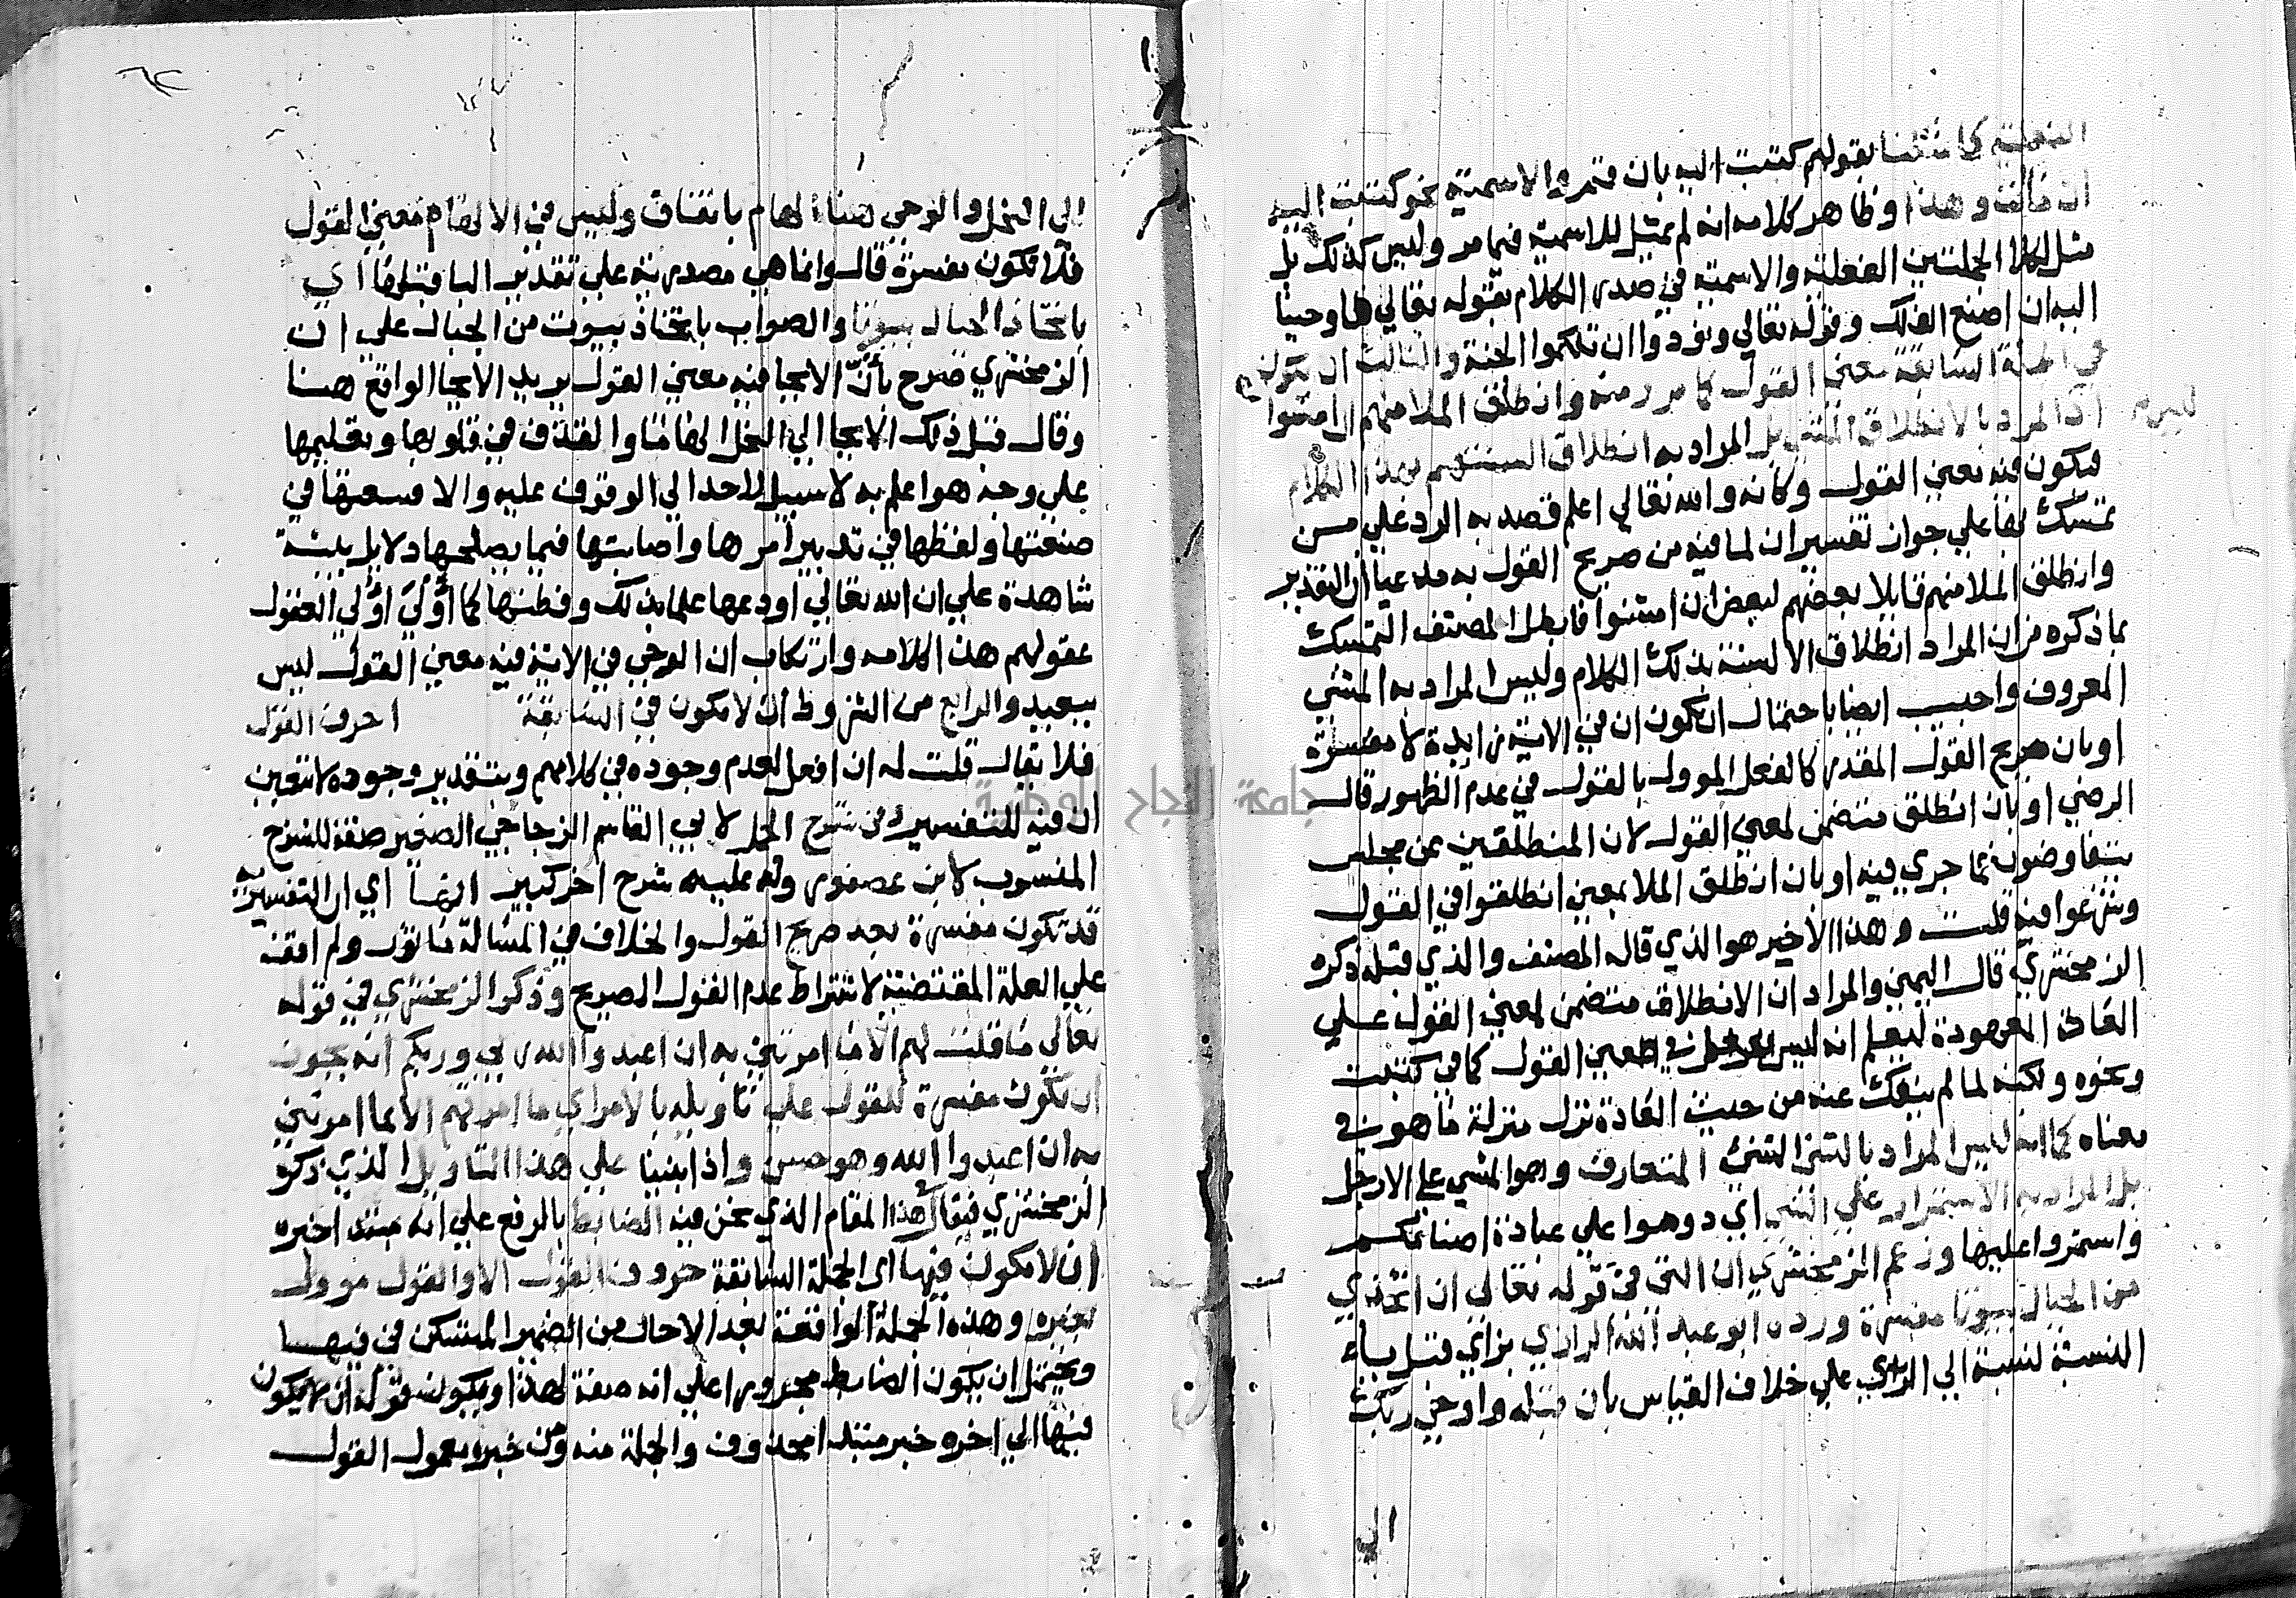 الفعلية كما مثلنا بقولهم كتبت اليه بان قم والاسمية نحو كتبت اليه
ان ما انت وهذا وظاهر كلامه انه لم يمثل للاسمية فيما مر وليس كذلك بل
مثل لكلا الجملتين الفعلية والاسمية في صدر الكلام بقوله تعالي فاوحينا
اليه ان اصنع الفلك وقوله تعالي ونودوا ان تلكموا الجنة والثالث ان يكون
في الجملة السابقة معني القول كما مر ومنه وانطلق الملا منهم ان امشوا
ليس اذ المراد بالانطلاق المشي بل المراد به انطلاق السنتهم بهذا الكلام
فيكون فيه معني القول وكانه والله تعالي اعلم قصد به الرد علي من
تمسك بها علي جواز تفسير ان لما فيه من صريح القول به مدعيا ان التقدير
وانطلق الملا منهم قايلا بعضهم لبعض ان امشوا فابطل المصنف التمسك
بما ذكره من ان المراد انطلاق الالسنة بذلك الكلام وليس المراد به المشي
المعروف واجيب ايضا باحتمال ان تكون ان في الاية زايدة لا مفسرة
او بان صريح القول المقدر كالفعل الموول بالقول في عدم الظهور قال
الرضي او بان انطلق متضمن لمعني القول لان المنطلقين عن مجلس
يتفاوضون بما جري فيه او بان انطلق الملا بمعني انطلقوا في القول
وشرعوا فيه قلت وهذا الاخير هو الذي قاله المصنف والذي قبله ذكره
الزمخشري قال اليمني والمراد ان الانطلاق متضمن لمعني القول علي
العادة المعهودة ليعلم انه ليس معني القول كما في كتبت
ونحوه ولكنه لما لم ينفك عنه من حيث العادة نزل منزلة ما هو في
معناه كما انه ليس المراد بالمشي المشي المتعارف وهو المشي علي الارجل
بل المراد به الاستمرار علي الشي اي دوموا علي عبادة اصنامكم
واستمروا عليها وزعم الزمخشري ان التي في قوله تعالي ان اتخذي
من الجبال بيوتا مفسرة ورده ابو عبد الله الرازي بزاي قبل ياء
النسبة لنسبة الي الري علي خلاف القياس بان قبله واوحي ربك
الي
الي النحل والوحي هنا الهام باتفاق وليس في الالهام معني القول
فلا تكون مفسرة قال وانما هي مصدرية علي تقدير البا قبلها اي
باتخاذ الجبال بيوتا والصواب باتخاذ بيوت من الجبال علي ان
الزمخشري صرح بأن الايحا فيه معني القول يريد الايحا الواقع هنا
وقال قبل ذلك الايحا الي النحل الهامها والقذف في قلوبها وتعليمها
علي وجه هو اعلم به لا سبيل لاحد الي الوقوف عليه والا فصنعتها في
صنعتها ولفظها في تدبير امرها واصابتها فيما يصلحها دلايل بينة
شاهدة علي ان الله تعالي اودعها علما بذلك وفطنها كما أولي أولي العقول
عقولهم هذا كلامه وارتكاب ان الوحي في الاية فيه معني القول ليس
ببعيد والرابع من الشروط ان لا يكون في السابقة احرف القول
فلا يقال قلت له ان افعل لعدم وجوده في كلامهم وبتقدير وجوده لا تتعين
ان فيه للتفسير وفي شرح الجمل لابي القاسم الزجاجي الصغير صفة للشرح
المنسوب لابن عصفور وله عليه شرح اخر كبير انها اي ان التفسيرية
قد تكون مفسرة بعد صريح القول والخلاف في المسالة ولم اقف
علي العلة المقتضية لاشتراط عدم القول الصريح وذكر الزمخشري في قوله
تعالي ما قلت لهم الا ما امرتني به ان اعبدوا الله ربي وربكم انه يجوز
ان تكون مفسرة للقول علي تاويله بالامر اي ما امرتهم الا بما امرتني
به ان اعبدوا الله وهو حسن واذا بنينا علي هذا التاويل الذي ذكره
الزمخشري فيقال هذا المقام الذي نحن فيه الضابط بالرفع علي انه مبتدا خبره
ان لا يكون فيها اي الجملة السابقة حروف القول الا والقول موول
بغيره وهذه الجملة الواقعة بعد الا حال من الضمير المستكن في فيها
ويحتمل ان يكون الضابط مجرورا علي انه صفة لهذا ويكون قوله ان لا يكون
فيها الي اخره خبر مبتدا محذوف والجملة منه ومن خبره معمول القول
جامعة النجاح الوطنية